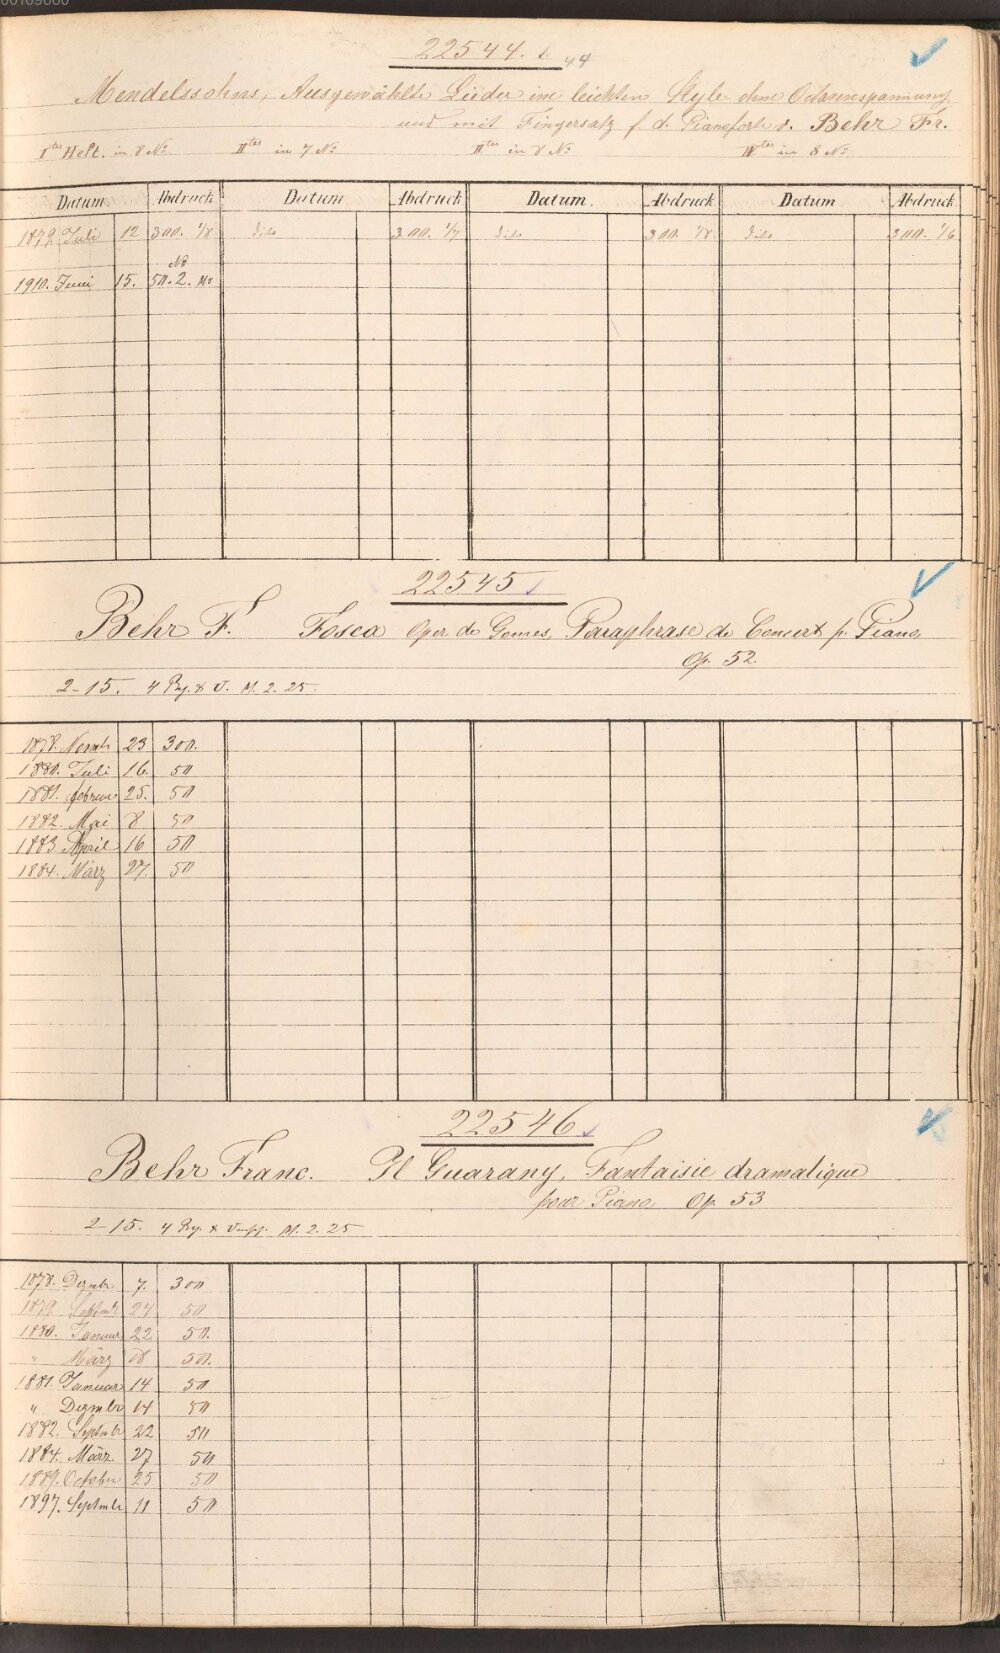 22544. 44
Mendelssohns, Ausgewählte Lieder im leichten Style ohne Octavenspannung
und mit Fingersatz f. d. Pianoforte v. Behr Fr.
Ites Heft. in 8 No IItes in 7 No IItes in 8 No IVtes in 8 No
Datum. Abdruck Datum Abdruck Datum. Abdruck Datum Abdruck.
1879 Juli 12 300. 1/8 dito 300. 1/7 dito 300. 1/8 dito 300. 1/6
No
1910. Juni 15. 50. 2. Ms
22545
Behr F. Fosca Oper de Gomes, Paraphrase de Concert p. Piano
Op. 52.
2-15. 4 Pg. & V. M. 2.25.
1878. Novmb 23 300.
1880. Juli 16. 50
1881. febrew 25. 50
1882. Mai 8 50
1883. April 16 50
1884. März 27. 50
22546
Behr Franc. Il Guarany, Fantaisie dramatique
pour Piano Op. 53
2-15. 4 Pg. & M. 2.25
1878. Dezmbr 7. 300
1879. Septmb 24 50
1880. Januar 22 50.
" März 18 50.
1881. Januar 14 50
" Dezmbr 14 50
1882. Septmbr 22 50
1884. März 27 50
1889. October 25 50
1897. Septmbr 11 50